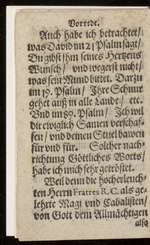 Vorrede.
Auch habe ich betrachtet/
was David im 21 Psalm sagt/
Du gibst ihm seines Hertzens
Wunsch/ und wegerst nicht/
was sein Mund bittet. Darzu
im 19. Psalm/ Ihre Schnur
gehet auß in alle Lande/ etc.
Und im 89. Psalm/ Ich wil
dir ewiglich Samen verschaf-
fen/ und deinen Stuel bawen
für und für. Solcher nach-
richtung Göttliches Worts/
habe ich mich sehr getröstet.
Weil denn die hocherleuch-
ten Herrn Fratres R. C. als ge-
lehrte Magi und Cabalisten/
von Gott dem Allmächtigen
also